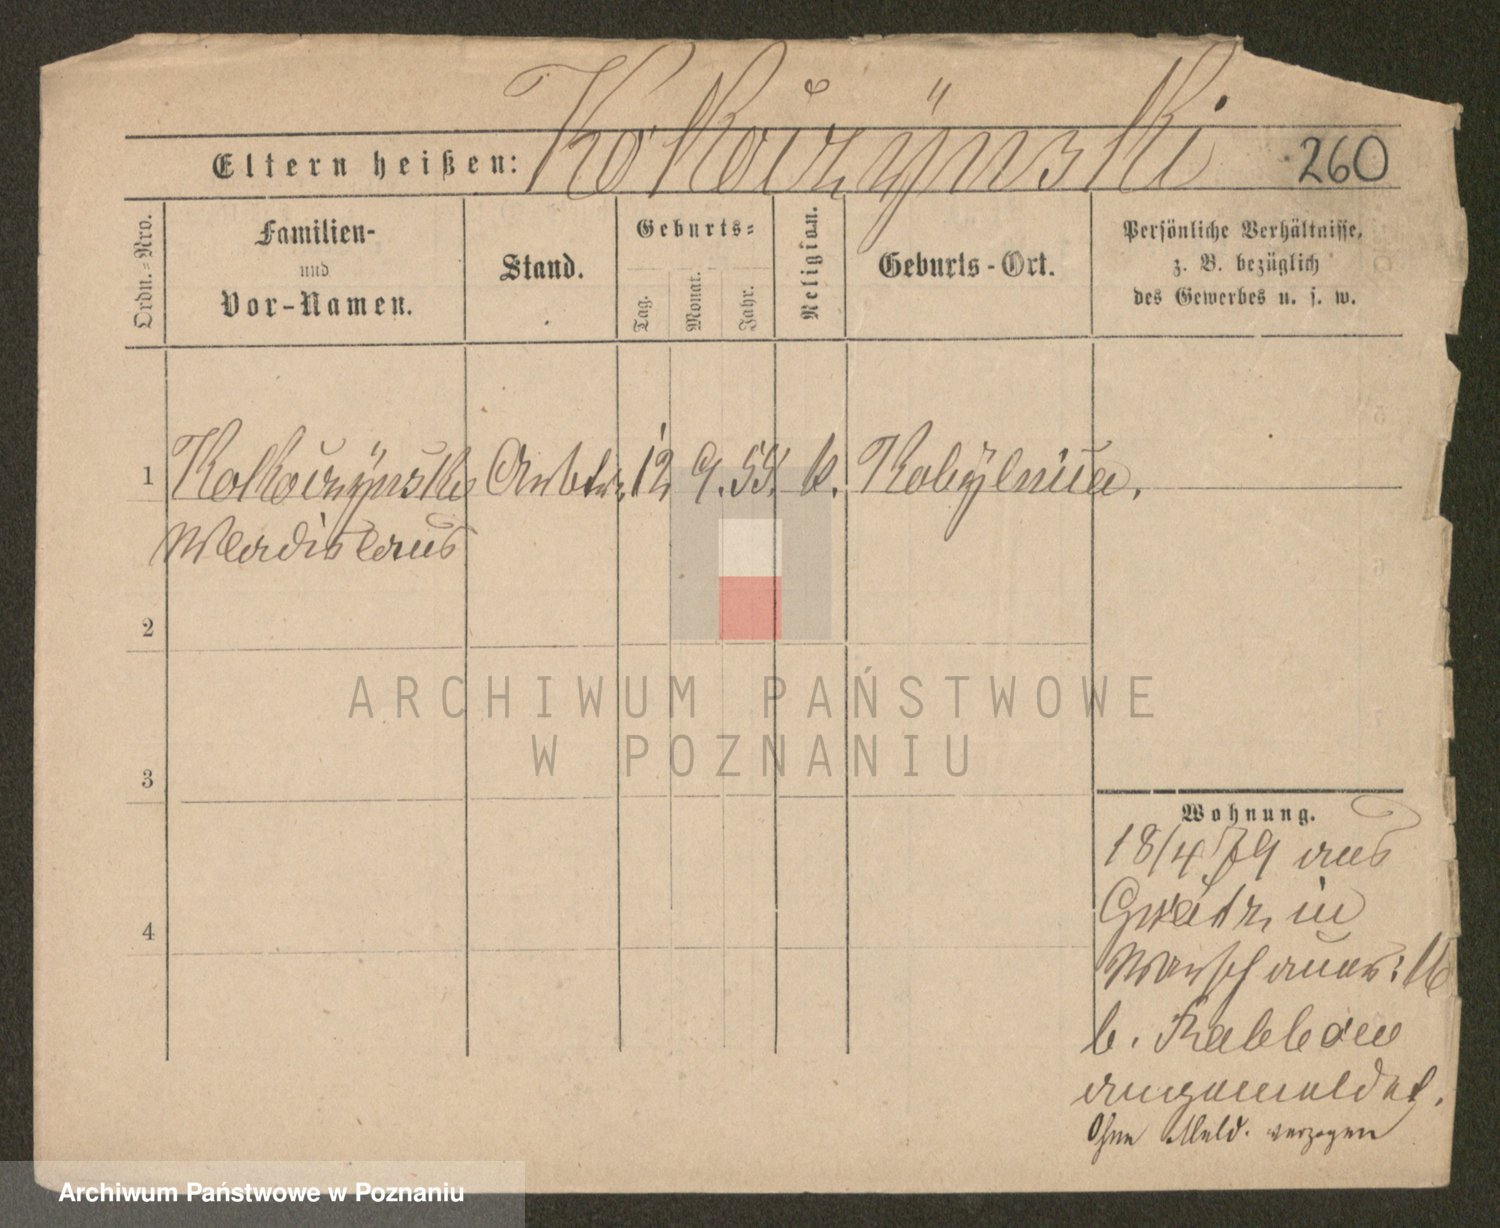 Kokoczynski
Eltern heißen: 260
Ordn.-Nro.
Familien-
und
Vor-Namen.
Stand.
Geburts-
Tag.
Monat.
Jahr.
Religion.
Geburts-Ort.
Persönliche Verhältnisse,
z. B. bezüglich
des Gewerbes u. s. w.
1 Kokoczynski Arbtr. 12 9. 55. k. Kobylnica.
Wladislaus
2
3
4
Wohnung.
18/4 79 aus
Graetz in
Warschauer: 16
b.
angemeldet.
Ohne Meld. verzogen
ARCHIWUM PAŃSTWOWE
W POZNANIU
Archiwum Państwowe w Poznaniu